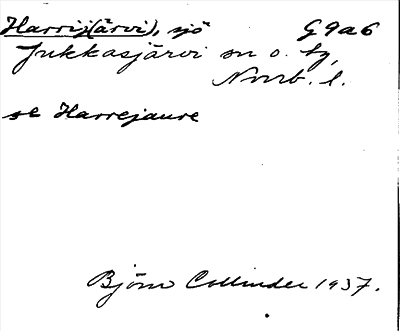 Harrij(ärvi), sjö G9a6
Jukkasjärvi sn o. tg,
Norrb. l.
se Harrejaure
Björn Collinder 1937.